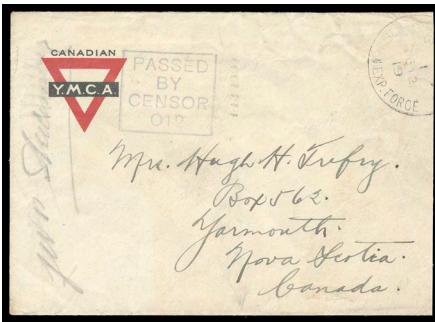 CANADIAN
Y.M.C.A.
PASSED
BY
CENSOR
012
EXP. FORCE
Mrs. Hugh H. Trefry.
Box 562.
Yarmouth.
Nova Scotia.
Canada.